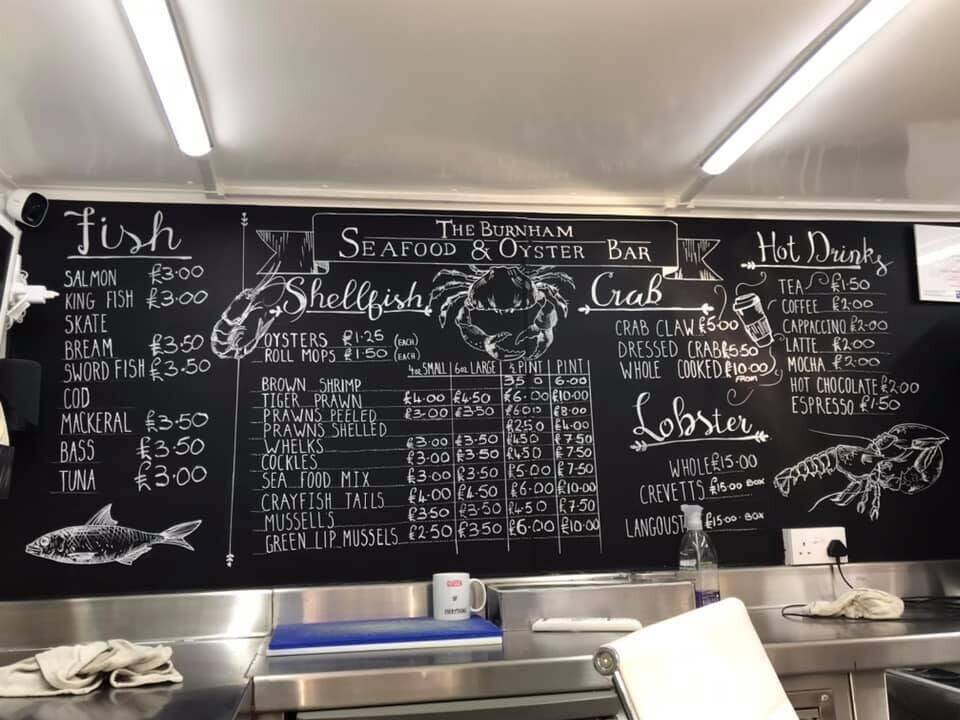 THE BURNHAM
SEAFOOD & OYSTER BAR
Fish
SALMON £3.00
KING FISH £3.00
SKATE
BREAM £3.50
SWORD FISH £3.50
COD
MACKERAL £3.50
BASS £3.50
TUNA £3.00
Shellfish
OYSTERS £1.25 (EACH)
ROLL MOPS £1.50 (EACH)
4oz SMALL 6oz LARGE ½ PINT PINT
BROWN SHRIMP 3.50 6.00
TIGER PRAWN £4.00 £4.50 £6.00 £10.00
PRAWNS PEELED £3.00 £3.50 £6.00 £8.00
PRAWNS SHELLED £2.50 £4.00
WHELKS £3.00 £3.50 £4.50 £7.50
COCKLES £3.00 £3.50 £4.50 £7.50
SEA FOOD MIX £3.00 £3.50 £5.00 £7.50
CRAYFISH TAILS £4.00 £4.50 £6.00 £10.00
MUSSELLS £3.50 £3.50 £4.50 £7.50
GREEN LIP MUSSELS £2.50 £3.50 £6.00 £10.00
Crab
CRAB CLAW £5.00
DRESSED CRAB £5.50
WHOLE COOKED £10.00
FROM
Lobster
WHOLE £15.00
CREVETTS £15.00 BOX
LANGOUST £15.00 BOX
Hot Drinks
TEA £1.50
COFFEE £2.00
CAPPACCINO £2.00
LATTE £2.00
MOCHA £2.00
HOT CHOCOLATE £2.00
ESPRESSO £1.50
QUEEN
OF
EVERYTHING